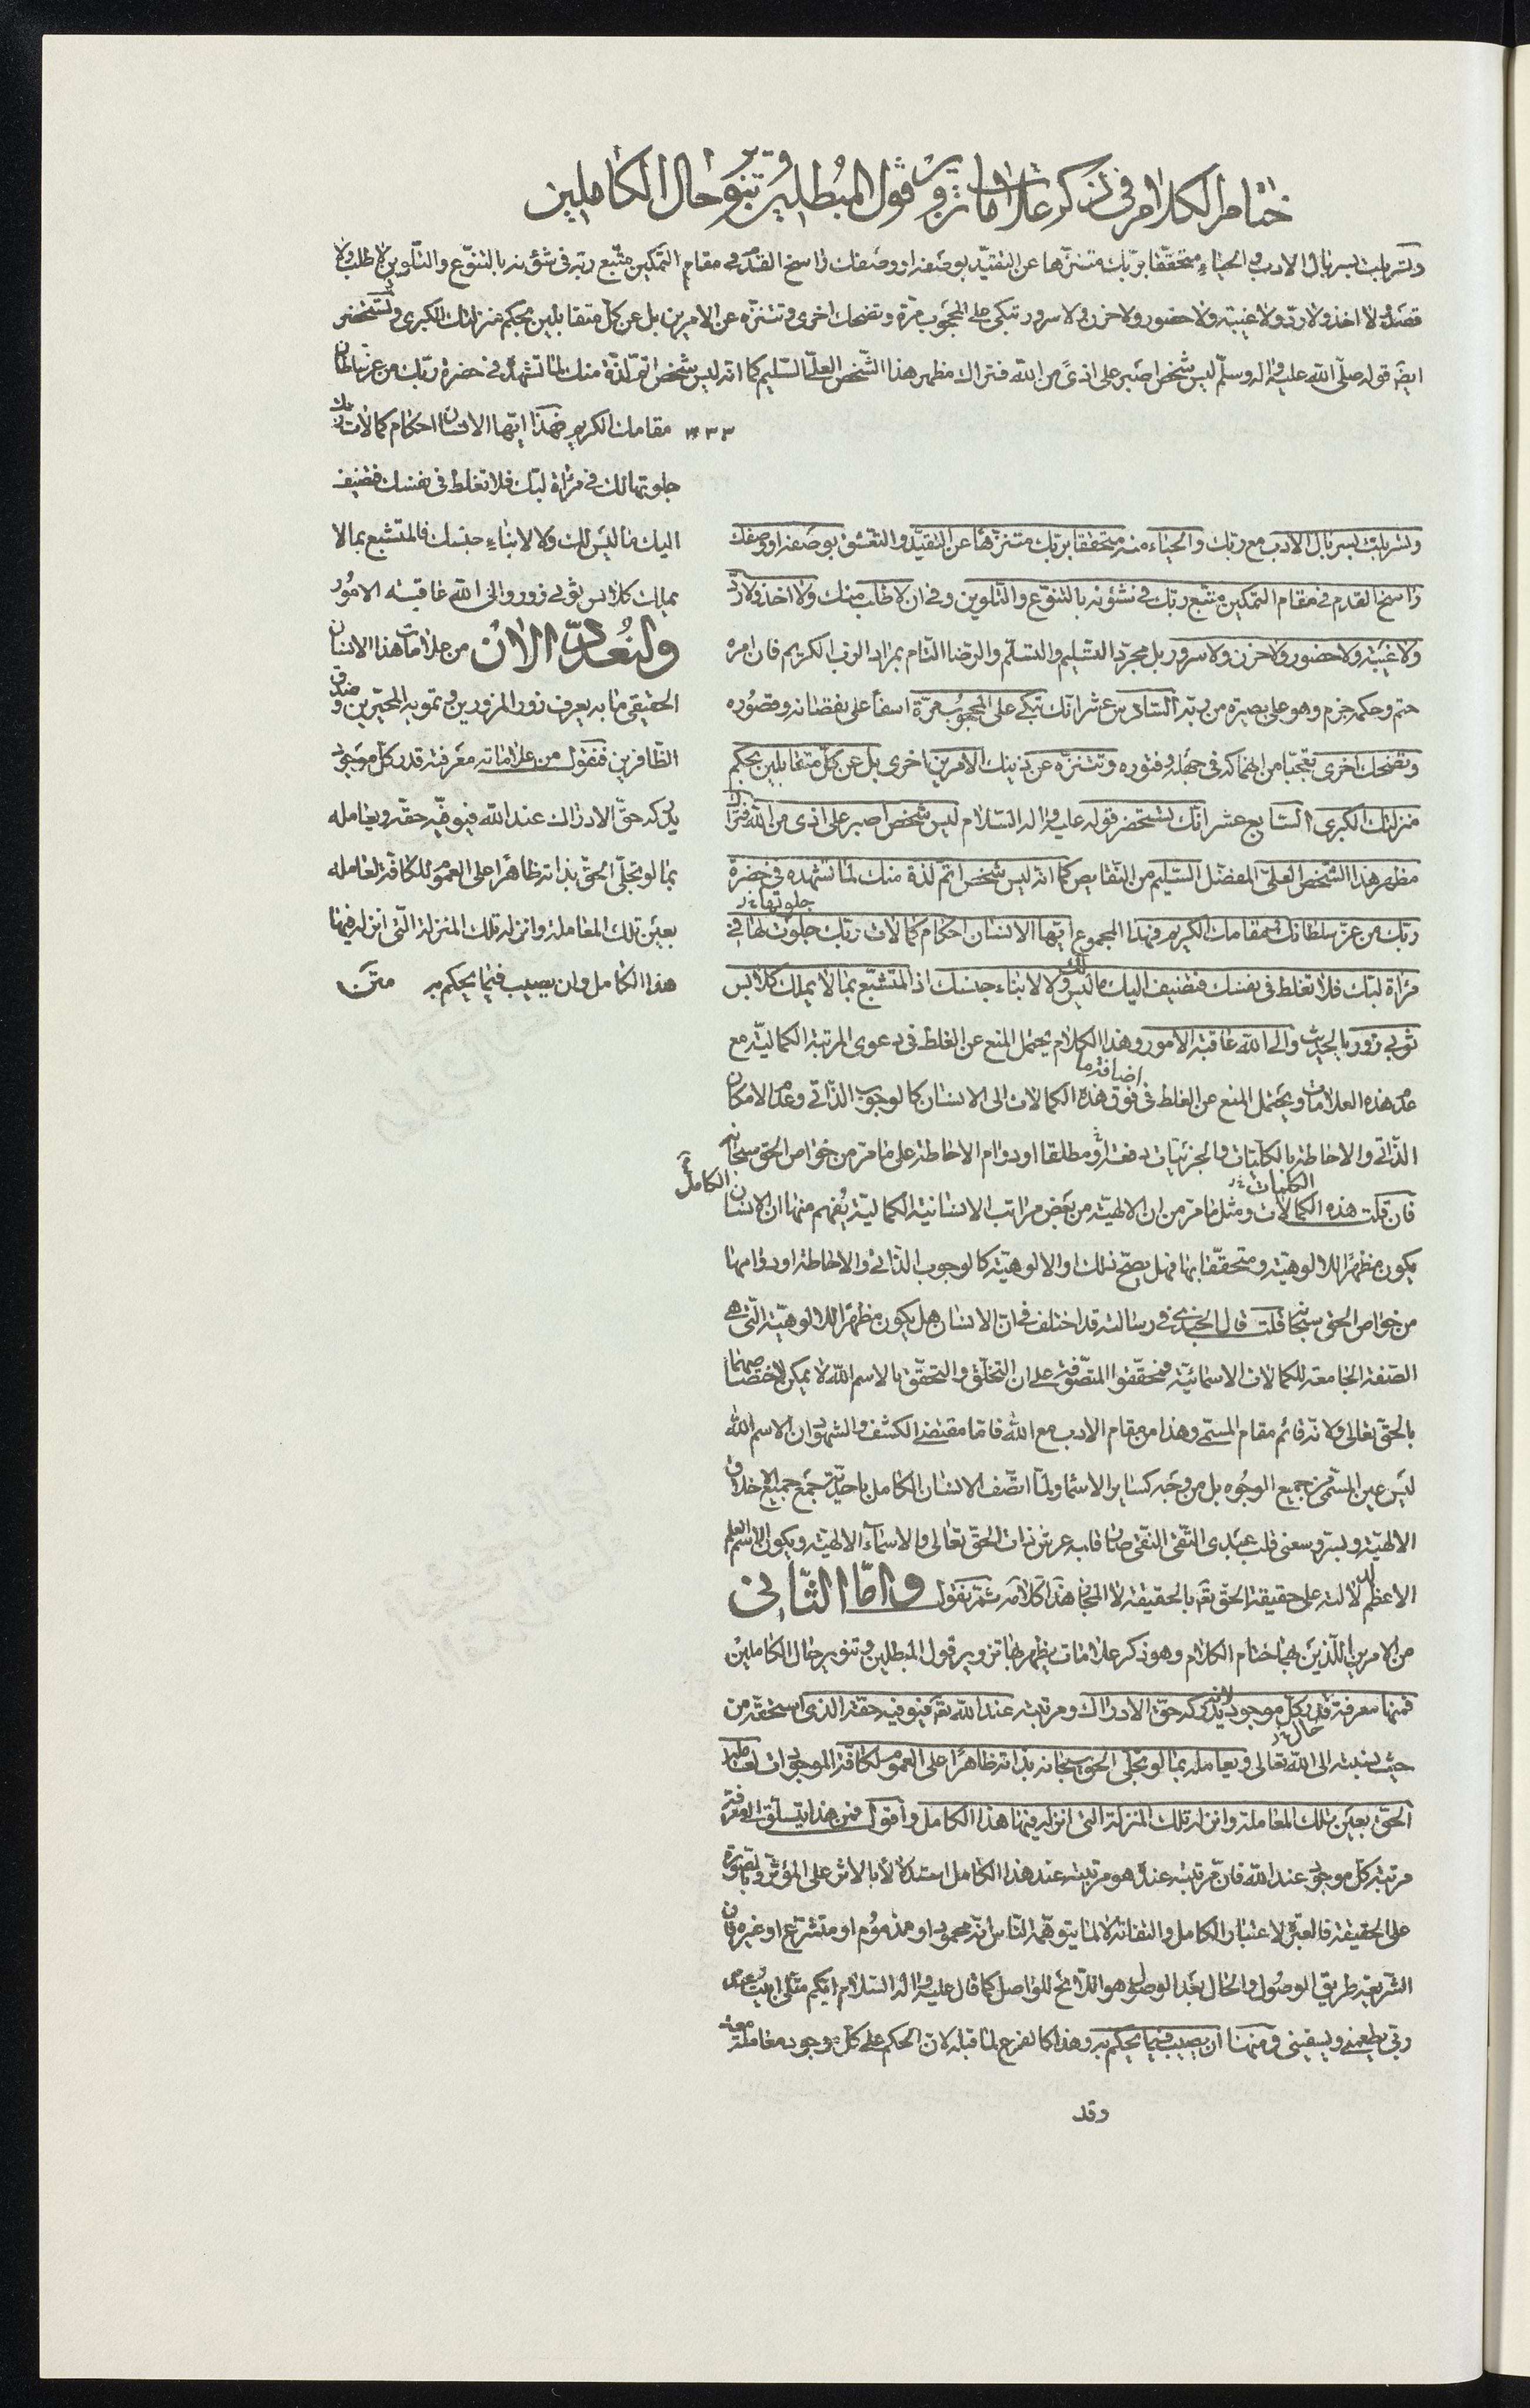 ختام الكلام في ذكر علامات تزوير قول المبطلين وتنوير حال الكاملين
وتسربلت بسربال الادب والحياء متحققا بربك متنزها عن التقيد بوصفه او وصفك راسخ القدم في مقام التمكين متبع ربه في شؤنه بالتنوع والتلوين لا طلب ولا
قصد ولا اخذ ولا رد ولا غيبة ولا حضور ولا حزن ولا سرور تبكى على المحجوب مرة وتضحك اخرى وتتنزه عن الامرين بل عن كل متقابلين بحكم منزلتك الكبرى وتستحضر
ايضا قوله صلى الله عليه واله وسلم ليس شخص اصبر على اذى من الله فتراك مظهر هذا الشخص العلى السليم كما انه ليس شخص اتم لذة منك لما تشهد في حضرة ربك من عز سلطان
مقامك الكريم فهذا ايها الانسان احكام كمالات ربك
جلوتها لك في مرآة لبك فلا تغلط في نفسك فتضيف
اليك ما ليس لك ولا لابناء جنسك فالمتشبع بما لا
يملك كلابس ثوبي زور والى الله عاقبة الامور
ولنعد الان من علامات هذا الانسان
الحقيقى ما به يعرف زور المزورين وتمويه المحيرين وصدق
الظافرين فنقول من علاماته معرفة قدر كل موجود
يدركه حق الادراك عند الله فيوفيه حقه ويعامله
بما لو تجلى الحق بذاته ظاهرا على العموم للكافة لعامله
بعين تلك المعاملة وانزله تلك المنزلة التى انزله فيها
هذا الكامل وان يصيب فيما يحكم به متن
وتسربلت بسربال الادب مع ربك والحياء منه متحققا بربك متنزها عن التقيد والتعشق بوصفه او وصفك
راسخ القدم في مقام التمكين متبع ربك في شؤنه بالتنوع والتلوين وفي ان لا طلب منك ولا اخذ ولا رد
ولا غيبة ولا حضور ولا حزن ولا سرور بل مجرد التسليم والتسلم والرضا التام بمراد الرب الكريم فان امره
حتم وحكمه جزم وهو على بصيرة من ربه السادس عشر انك تبكى على المحجوب مرة اسفا على نقصانه وقصوره
وتضحك اخرى تعجبا من انهماكه في جهله وفتوره وتتنزه عن ذينك الامرين اخرى بل عن كل متقابلين بحكم
منزلتك الكبرى السابع عشر انك تستحضر قوله عليه واله السلام ليس شخص اصبر على اذى من الله فتراك
مظهر هذا الشخص العلى المفضل السليم من النقايص كما انه ليس شخص اتم لذة منك لما تشهده في حضرة
ربك من عز سلطانك ومقامك الكريم فهذا المجموع ايها الانسان احكام كمالات ربك جلوت لها في
مرآة لبك فلا تغلط في نفسك فتضيف اليك ما ليس لك ولا لابناء جنسك اذ المتشبع بما لا يملك كلابس
ثوبي زور بالحديث والى الله عاقبة الامور وهذا الكلام يحتمل المنع عن الغلط في دعوى المرتبة الكمالية مع
عدم هذه العلامات ويحتمل المنع عن الغلط في فوق هذه الكمالات الى الانسان كالوجوب الذاتى وعدم الامكان
الذاتى والاحاطة بالكليات والجزئيات دفعة او مطلقا او دوام الاحاطة على ما مر من خواص الحق سبحانه
فان قلت هذه الكمالات ومثل ما مر من ان الالهية من بعض مراتب الانسانية الكمالية يفهم منها ان الانسان الكامل
يكون مظهرا للالوهية ومتحققا بها فهل يصح ذلك او الالوهية كالوجوب الذاتى والاحاطة او دوامها
من خواص الحق سبحانه قلت قال الجندى في رسالته قد اختلف في ان الانسان هل يكون مظهرا للالوهية التى هى
الصفة الجامعة للكمالات الاسمائية فمحققوا المتصوفة على ان التخلق والتحقق بالاسم الله لا يمكن لاختصاصهما
بالحق تعالى ولانه قائم مقام المسمى وهذا من مقام الادب مع الله فاما مقتضى الكشف والشهود ان الاسم الله
ليس عين المسمى من جميع الوجوه بل من وجه كساير الاسما ولما اتصف الانسان الكامل باحدية جمع جميع الاخلاق
الالهية وبسر وسعنى قلب عبدى التقى النقى صار قلبه عرش ذات الحق تعالى والاسماء الالهية ويكون الاسم العلم
الاعظم لدلالته على حقيقة الحق تعه بالحقيقة لا المجاز هذا كلامه ثم نقول واما الثانى
من الامرين اللذين هما ختام الكلام وهو ذكر علامات يظهر بها تزوير قول المبطلين وتنوير حال الكاملين
فمنها معرفة قدر كل موجود لانه يدركه حق الادراك ومرتبته عند الله تعه فيوفيه حقه الذى استحقه من
حيث نسبته الى الله تعالى ويعامله بما لو تجلى الحق سبحانه بذاته ظاهرا على العموم لكافة الموجودات لعامله
الحق بعين تلك المعاملة وانزله تلك المنزلة التى انزله فيها هذا الكامل واقول فمن هذا يتسلق الى معرفة
مرتبة كل موجود عند الله فان مرتبته عنده هو مرتبته عند هذا الكامل استدلالا بالاثر على المؤثر وبالصورة
على الحقيقة فالعبرة لاعتبار الكامل والتفاته لا لما يتوهمه الناس انه محمود او مذموم او متشرع او غيره فان
الشريعة طريق الوصول والحال بعد الوصول هو اللايح للواصل كما قال عليه واله السلام ايكم مثلى ابيت عند
ربى يطعمنى ويسقينى ومنها ان يصيب فيما يحكم به وهذا كالفرع لما قبله لان الحكم على كل موجود معاملة معه
وقد